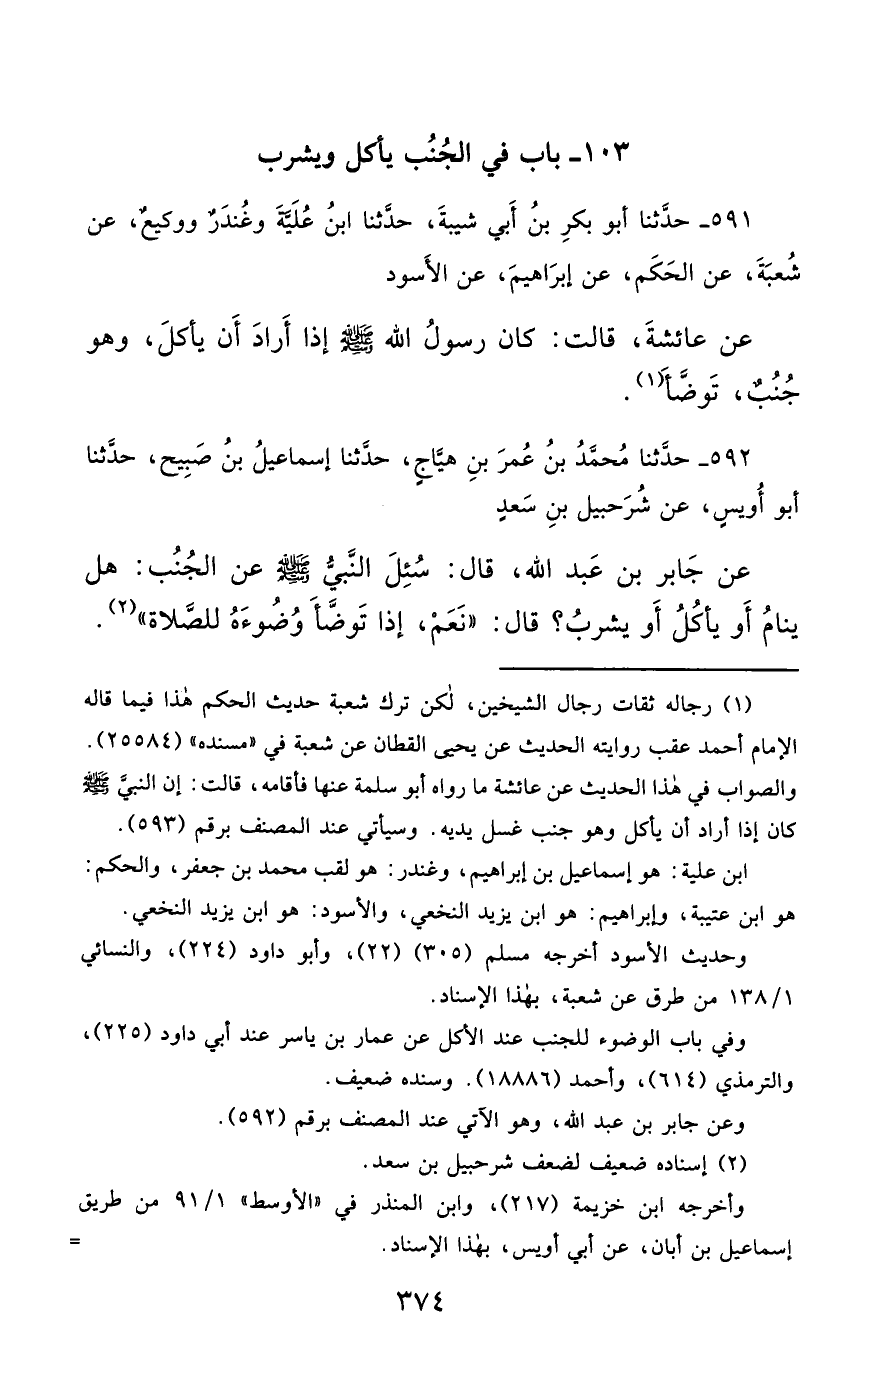 ١٠٣ـ باب في الجُنُب يأكل ويشرب
٥٩١ـ حدَّثنا أبو بكرِ بنُ أَبي شيبةَ، حدَّثنا ابنُ عُلَيَّةَ وغُندَرٌ ووكيعٌ، عن
شُعبَةَ، عن الحَكَم، عن إبرَاهيمَ، عن الأَسود
عن عائشةَ، قالت: كان رسولُ الله ﷺ إذا أَرادَ أَن يأكلَ، وهو
جُنُبٌ، تَوضَّأَ(١).
٥٩٢ـ حدَّثنا مُحمَّدُ بنُ عُمرَ بنِ هيَّاجٍ، حدَّثنا إسماعيلُ بنُ صَبِيح، حدَّثنا
أبو أُويسٍ، عن شُرَحبيل بنِ سَعدٍ
عن جَابر بن عَبد الله، قال: سُئِلَ النَّبيُّ ﷺ عن الجُنُب: هل
ينامُ أَو يأكُلُ أَو يشربُ؟ قال: «نَعَمْ، إذا تَوضَّأَ وُضُوءَهُ للصَّلاة»(٢).
(١) رجاله ثقات رجال الشيخين، لٰكن ترك شعبة حديث الحكم هٰذا فيما قاله
الإمام أحمد عقب روايته الحديث عن يحيى القطان عن شعبة في «مسنده» (٢٥٥٨٤).
والصواب في هٰذا الحديث عن عائشة ما رواه أبو سلمة عنها فأقامه، قالت: إن النبيَّ ﷺ
كان إذا أراد أن يأكل وهو جنب غسل يديه. وسيأتي عند المصنف برقم (٥٩٣).
ابن علية: هو إسماعيل بن إبراهيم، وغندر: هو لقب محمد بن جعفر، والحكم:
هو ابن عتيبة، وإبراهيم: هو ابن يزيد النخعي، والأسود: هو ابن يزيد النخعي.
وحديث الأسود أخرجه مسلم (٣٠٥) (٢٢)، وأبو داود (٢٢٤)، والنسائي
١/١٣٨ من طرق عن شعبة، بهٰذا الإسناد.
وفي باب الوضوء للجنب عند الأكل عن عمار بن ياسر عند أبي داود (٢٢٥)،
والترمذي (٦١٤)، وأحمد (١٨٨٨٦). وسنده ضعيف.
وعن جابر بن عبد الله، وهو الآتي عند المصنف برقم (٥٩٢).
(٢) إسناده ضعيف لضعف شرحبيل بن سعد.
وأخرجه ابن خزيمة (٢١٧)، وابن المنذر في «الأوسط» ١/٩١ من طريق
إسماعيل بن أبان، عن أبي أويس، بهٰذا الإسناد. =
٣٧٤